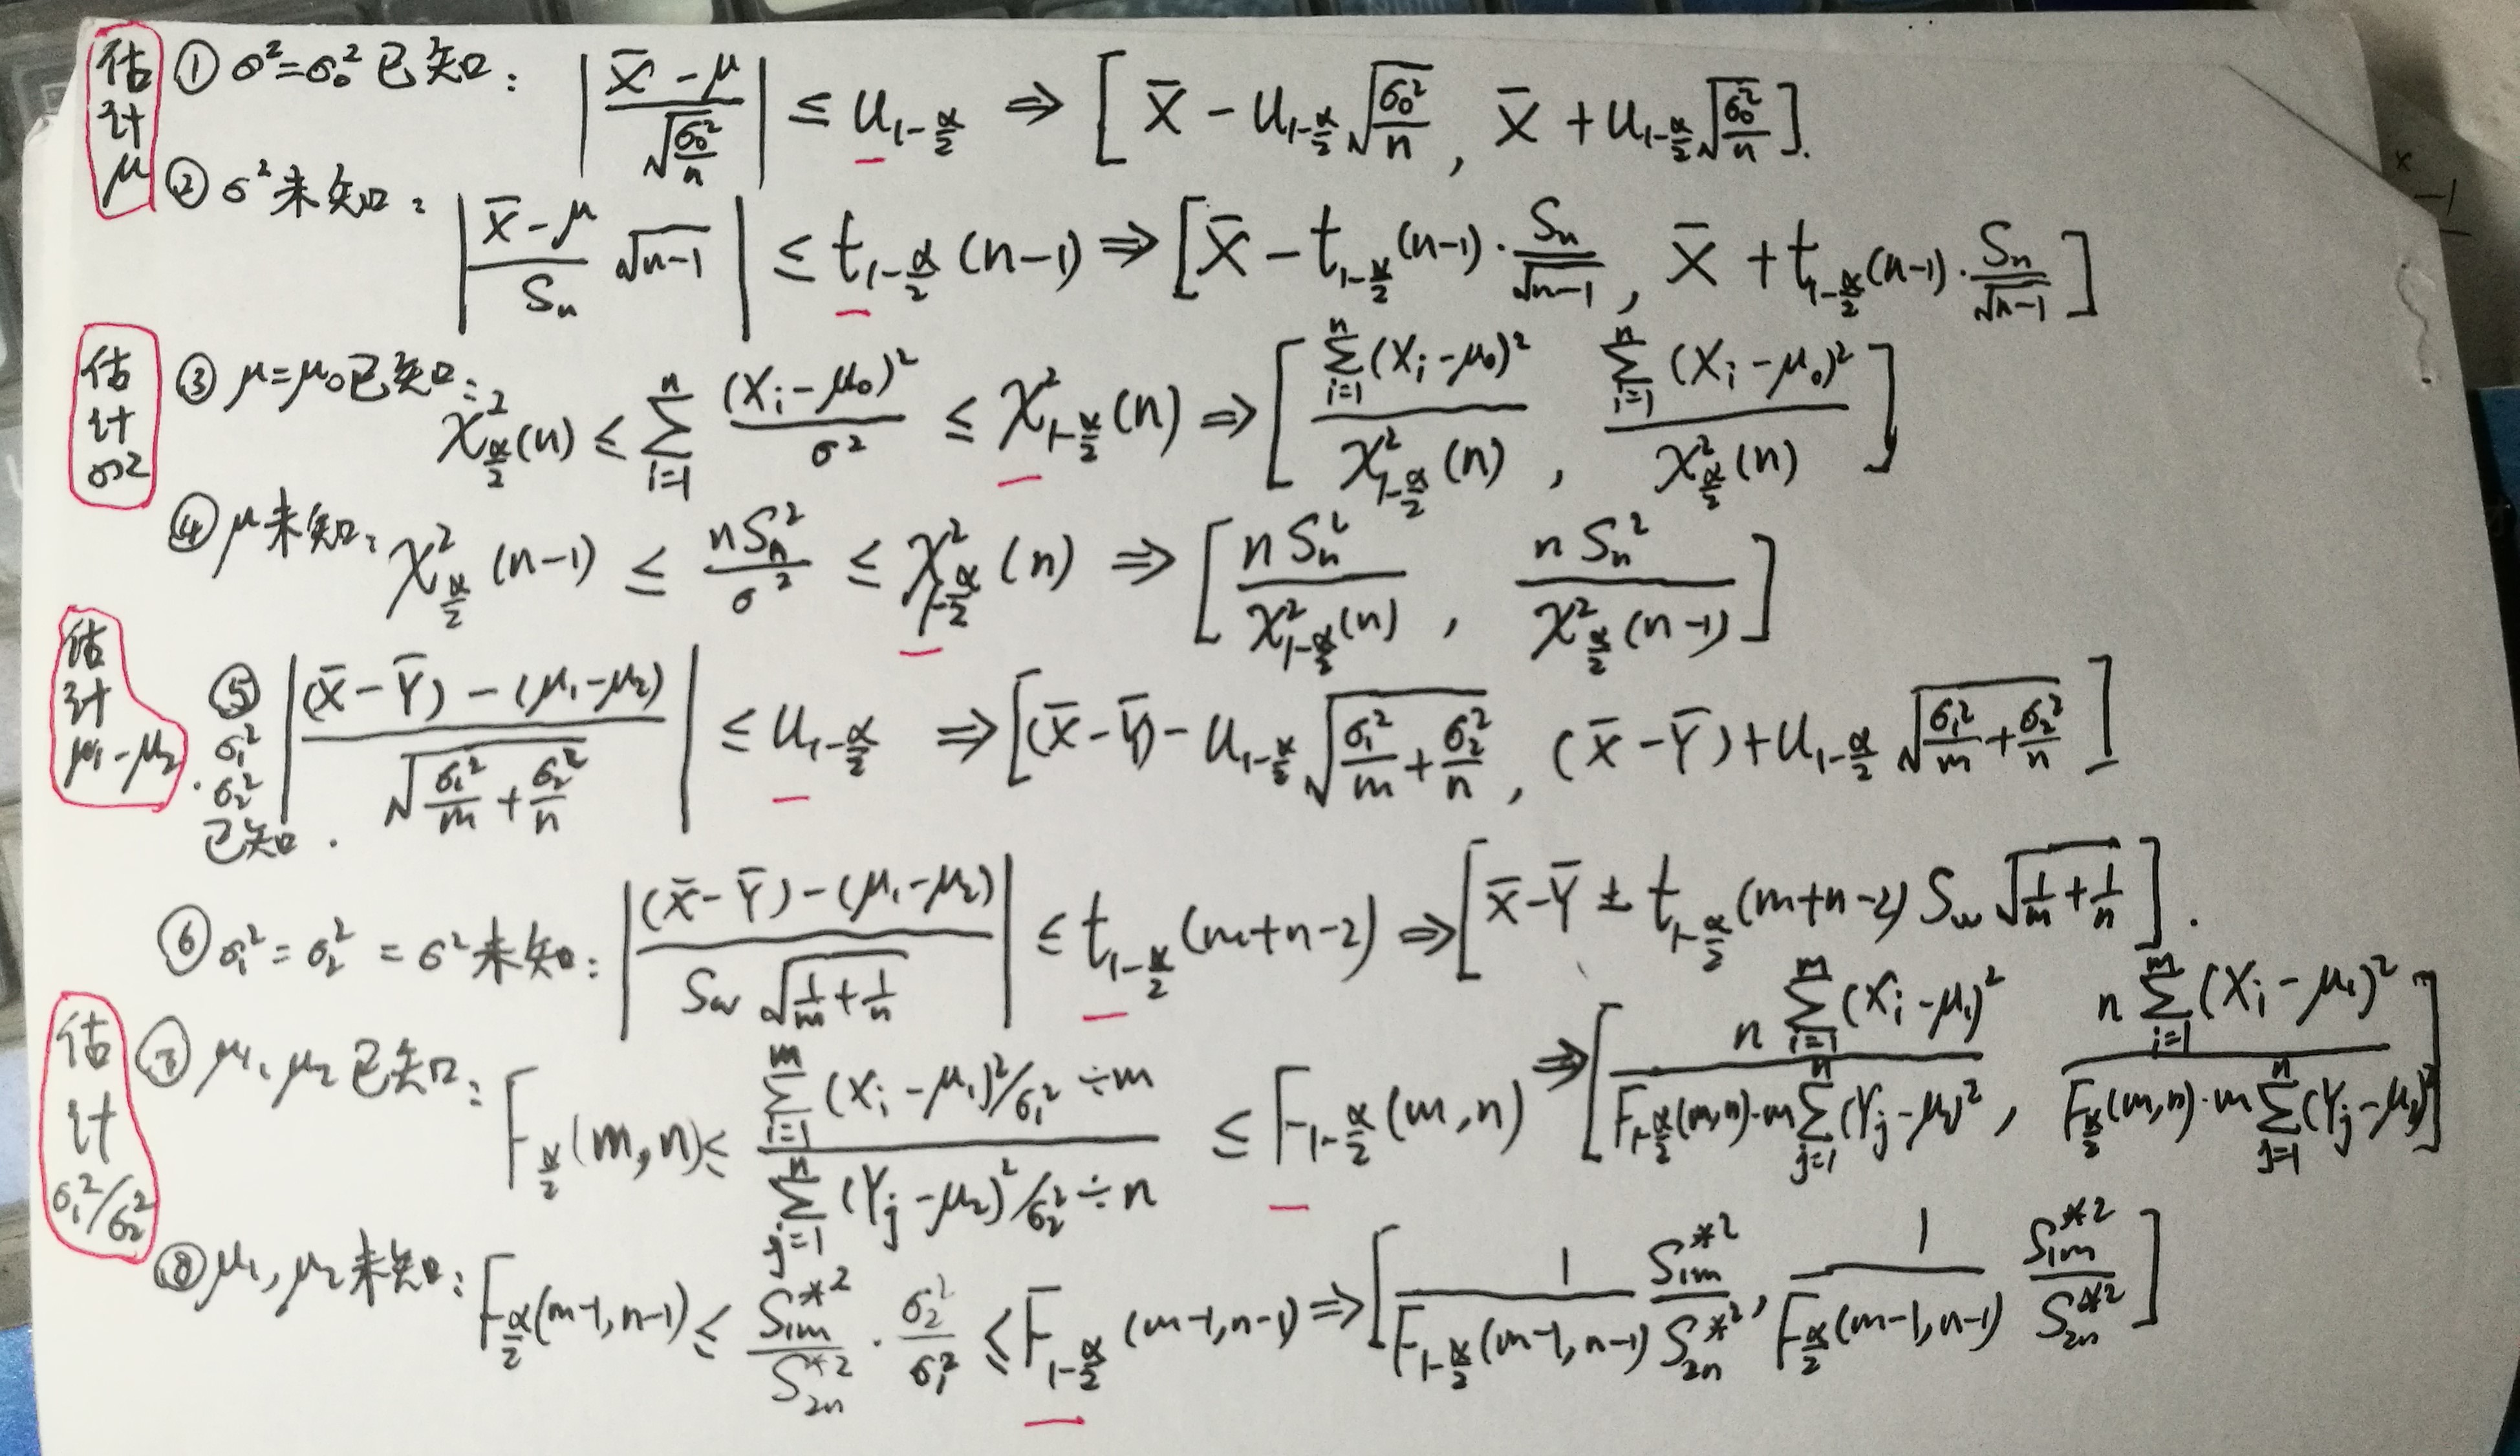 估计μ
① σ²=σ₀² 已知: |(X̄-μ)/√(σ₀²/n)| ≤ u_{1-α/2} ⇒ [X̄ - u_{1-α/2}√(σ₀²/n), X̄ + u_{1-α/2}√(σ₀²/n)].
② σ²未知: |(X̄-μ)/Sₙ √(n-1)| ≤ t_{1-α/2}(n-1) ⇒ [X̄ - t_{1-α/2}(n-1)·Sₙ/√(n-1), X̄ + t_{1-α/2}(n-1)·Sₙ/√(n-1)]
估计σ²
③ μ=μ₀已知: χ²_{α/2}(n) ≤ ∑_{i=1}^{n} (Xᵢ-μ₀)²/σ² ≤ χ²_{1-α/2}(n) ⇒ [∑_{i=1}^{n}(Xᵢ-μ₀)²/χ²_{1-α/2}(n), ∑_{i=1}^{n}(Xᵢ-μ₀)²/χ²_{α/2}(n)]
④ μ未知: χ²_{α/2}(n-1) ≤ nSₙ²/σ² ≤ χ²_{1-α/2}(n) ⇒ [nSₙ²/χ²_{1-α/2}(n), nSₙ²/χ²_{α/2}(n-1)]
估计μ₁-μ₂
⑤ σ₁² σ₂² 已知. |((X̄-Ȳ)-(μ₁-μ₂))/√(σ₁²/m+σ₂²/n)| ≤ u_{1-α/2} ⇒ [(X̄-Ȳ) - u_{1-α/2}√(σ₁²/m+σ₂²/n), (X̄-Ȳ)+u_{1-α/2}√(σ₁²/m+σ₂²/n)]
⑥ σ₁²=σ₂²=σ²未知: |((X̄-Ȳ)-(μ₁-μ₂))/(S_w√(1/m+1/n))| ≤ t_{1-α/2}(m+n-2) ⇒ [X̄-Ȳ ± t_{1-α/2}(m+n-2) S_w√(1/m+1/n)].
估计σ₁²/σ₂²
⑦ μ₁、μ₂已知: F_{α/2}(m,n) ≤ (∑_{i=1}^{m}(Xᵢ-μ₁)²/σ₁² ÷m)/(∑_{j=1}^{n}(Yⱼ-μ₂)²/σ₂² ÷n) ≤ F_{1-α/2}(m,n) ⇒ [n∑_{i=1}^{m}(Xᵢ-μ₁)²/(F_{1-α/2}(m,n)·m∑_{j=1}^{n}(Yⱼ-μ₂)²), n∑_{i=1}^{m}(Xᵢ-μ₁)²/(F_{α/2}(m,n)·m∑_{j=1}^{n}(Yⱼ-μ₂)²)]
⑧ μ₁,μ₂未知: F_{α/2}(m-1,n-1) ≤ S*²_{1m}/S*²_{2n} · σ₂²/σ₁² ≤ F_{1-α/2}(m-1,n-1) ⇒ [1/F_{1-α/2}(m-1,n-1) S*²_{1m}/S*²_{2n}, 1/F_{α/2}(m-1,n-1) S*²_{1m}/S*²_{2n}]